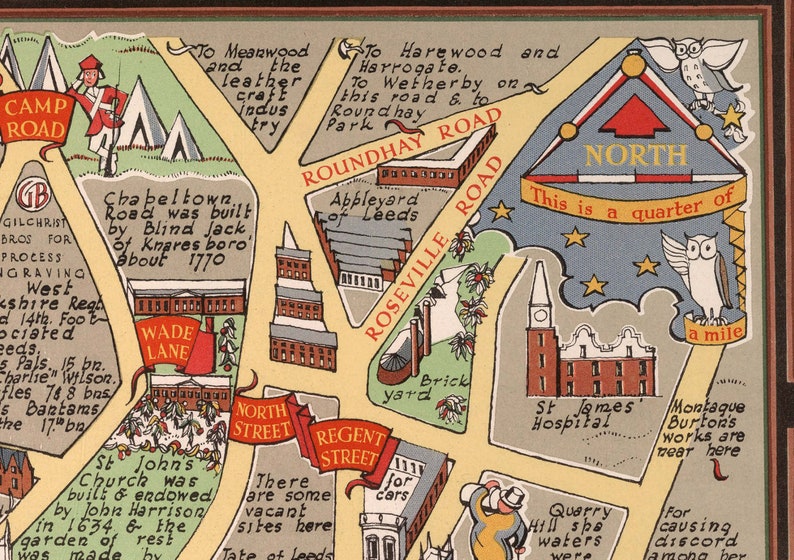 CAMP
ROAD
To Meanwood
and the
leather
craft
indus
try
To Harewood and
Harrogate.
To Wetherby on
this road & to
Roundhay
Park
ROUNDHAY ROAD
NORTH
This is a quarter of
a mile
GB
GILCHRIST
BROS FOR
PROCESS
NGRAVING
Chapeltown
Road was built
by Blind Jack
of Knaresboro'
about 1770
Appleyard
of Leeds
ROSEVILLE ROAD
West
kshire Regt.
d 14th. Foot-
sociated
eeds.
s Pals, 15 bn.
Charlie" Wilson.
ifles 7 & 8 bns.
s Bantams
the 17th bn
WADE
LANE
NORTH
STREET
REGENT
STREET
Brick
yard
St James'
Hospital
Montague
Burton's
works are
near here
St John's
Church was
built & endowed
by John Harrison
in 1634 & the
garden of rest
was made by
There
are some
vacant
sites here
Tate of Leeds
for
cars
Quarry
Hill spa
waters
were
For
causing
discord
among her